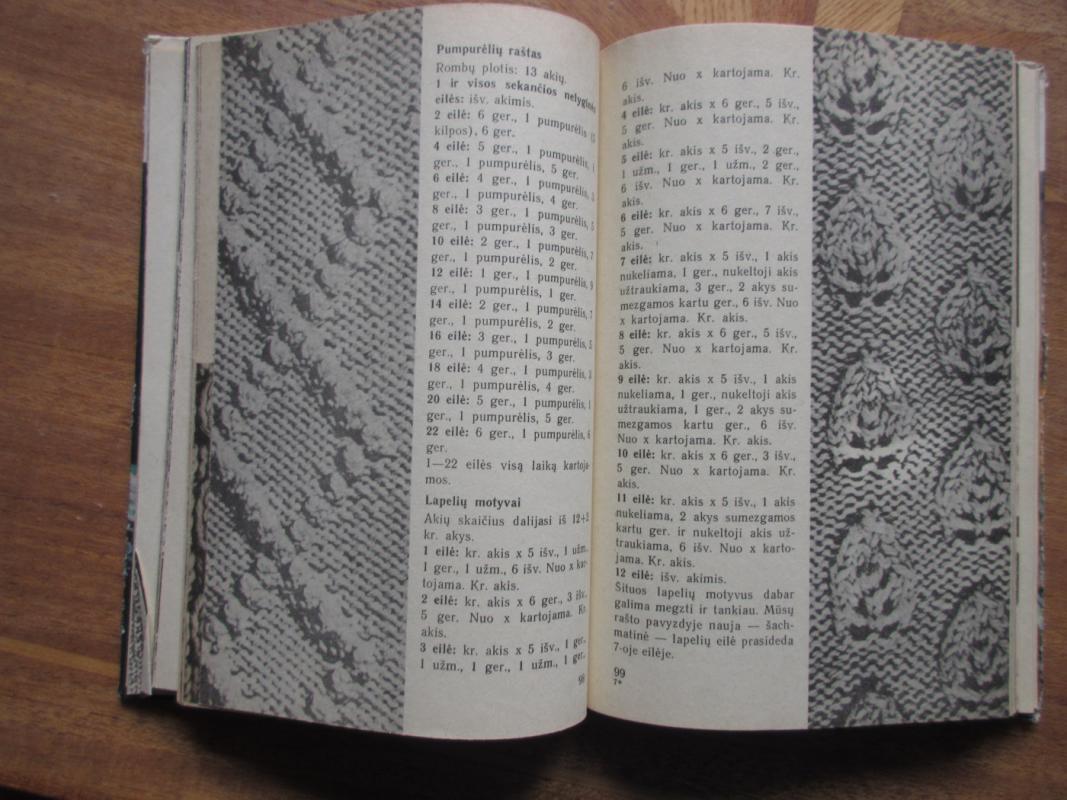 Pumpurėlių raštas
Rombų plotis: 13 akių.
1 ir visos sekančios nelyginės
eilės: išv. akimis.
2 eilė: 6 ger., 1 pumpurėlis
kilpos), 6 ger.
4 eilė: 5 ger., 1 pumpurėlis, 1
ger., 1 pumpurėlis, 5 ger.
6 eilė: 4 ger., 1 pumpurėlis, 3
ger., 1 pumpurėlis, 4 ger.
8 eilė: 3 ger., 1 pumpurėlis, 5
ger., 1 pumpurėlis, 3 ger.
10 eilė: 2 ger., 1 pumpurėlis, 7
ger., 1 pumpurėlis, 2 ger.
12 eilė: 1 ger., 1 pumpurėlis, 9
ger., 1 pumpurėlis, 1 ger.
14 eilė: 2 ger., 1 pumpurėlis, 7
ger., 1 pumpurėlis, 2 ger.
16 eilė: 3 ger., 1 pumpurėlis, 5
ger., 1 pumpurėlis, 3 ger.
18 eilė: 4 ger., 1 pumpurėlis, 3
ger., 1 pumpurėlis, 4 ger.
20 eilė: 5 ger., 1 pumpurėlis, 1
ger., 1 pumpurėlis, 5 ger.
22 eilė: 6 ger., 1 pumpurėlis, 6
ger.
1—22 eilės visą laiką kartoja-
mos.
Lapelių motyvai
Akių skaičius dalijasi iš 12+2
kr. akys.
1 eilė: kr. akis x 5 išv., 1 užm.,
1 ger., 1 užm., 6 išv. Nuo x kar-
tojama. Kr. akis.
2 eilė: kr. akis x 6 ger., 3 išv.,
5 ger. Nuo x kartojama. Kr.
akis.
3 eilė: kr. akis x 5 išv., 1 ger.,
1 užm., 1 ger., 1 užm., 1 ger.,
98
6 išv. Nuo x kartojama. Kr.
akis.
4 eilė: kr. akis x 6 ger., 5 išv.,
5 ger. Nuo x kartojama. Kr.
akis.
5 eilė: kr. akis x 5 išv., 2 ger.,
1 užm., 1 ger., 1 užm., 2 ger.,
6 išv. Nuo x kartojama. Kr.
akis.
6 eilė: kr. akis x 6 ger., 7 išv.,
5 ger. Nuo x kartojama. Kr.
akis.
7 eilė: kr. akis x 5 išv., 1 akis
nukeliama, 1 ger., nukeltoji akis
užtraukiama, 3 ger., 2 akys su-
mezgamos kartu ger., 6 išv. Nuo
x kartojama. Kr. akis.
8 eilė: kr. akis x 6 ger., 5 išv.,
5 ger. Nuo x kartojama. Kr.
akis.
9 eilė: kr. akis x 5 išv., 1 akis
nukeliama, 1 ger., nukeltoji akis
užtraukiama, 1 ger., 2 akys su-
mezgamos kartu ger., 6 išv.
Nuo x kartojama. Kr. akis.
10 eilė: kr. akis x 6 ger., 3 išv.,
5 ger. Nuo x kartojama. Kr.
akis.
11 eilė: kr. akis x 5 išv., 1 akis
nukeliama, 2 akys sumezgamos
kartu ger. ir nukeltoji akis už-
traukiama, 6 išv. Nuo x karto-
jama. Kr. akis.
12 eilė: išv. akimis.
Šituos lapelių motyvus dabar
galima megzti ir tankiau. Mūsų
rašto pavyzdyje nauja — šach-
matinė — lapelių eilė prasideda
7-oje eilėje.
99
7*